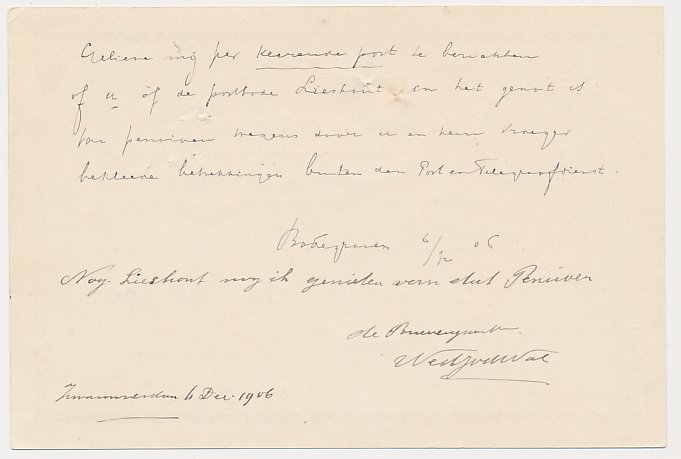 Gelieve mij per keerende post te berichten
of u òf de postbode Lieshout in het genot is
van pensioen wegens door u en hem vroeger
bekleede betrekkingen buiten den Post en Telegraafdienst.
Bodegraven 6/12 06
Nog Lieshout nog ik genieten van dat Pensioen
de Brievengaarder
Zwammerdam Dec. 1906